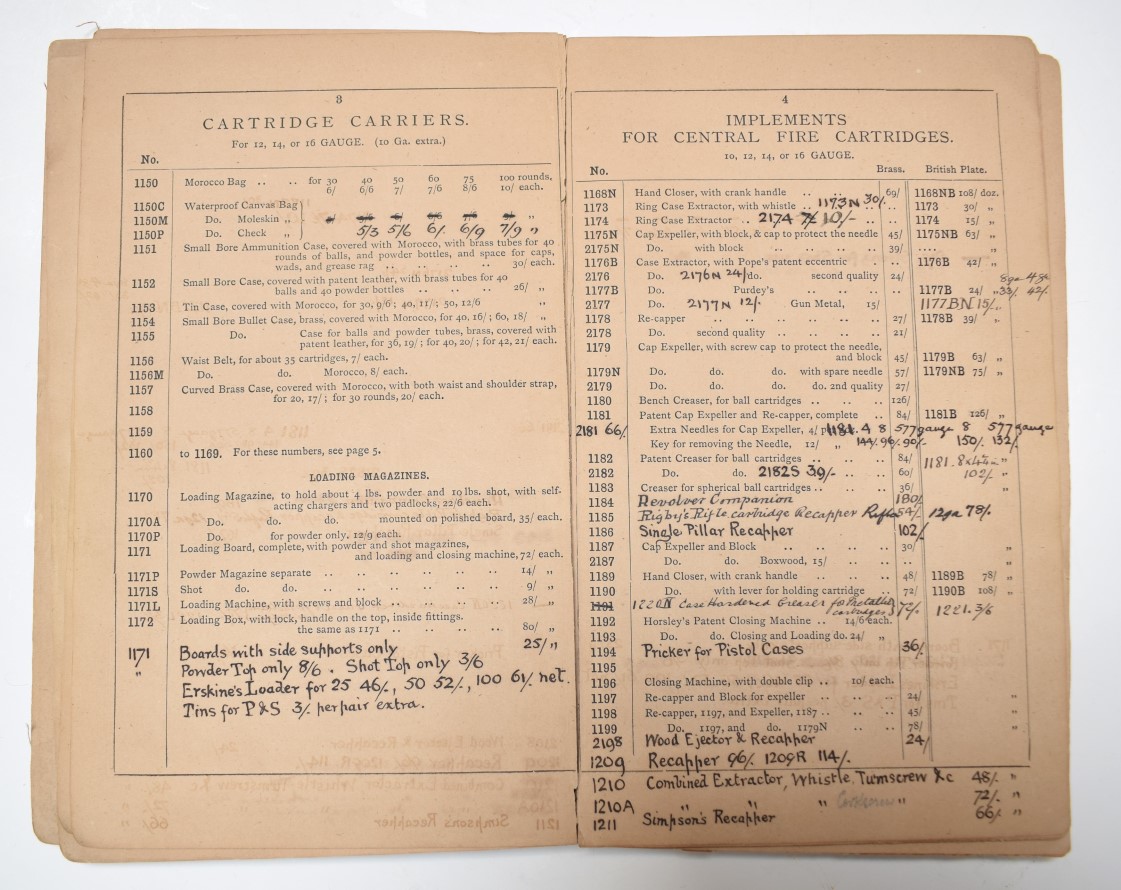 3
CARTRIDGE CARRIERS.
For 12, 14, or 16 GAUGE. (10 Ga. extra.)
No.
1150 Morocco Bag .. .. for 30 40 50 60 75 100 rounds.
6/ 6/6 7/ 7/6 8/6 10/ each.
1150C Waterproof Canvas Bag
1150M Do. Moleskin „ „
1150P Do. Check „ 5/3 5/6 6/. 6/9 7/9 „
1151 Small Bore Ammunition Case, covered with Morocco, with brass tubes for 40
rounds of balls, and powder bottles, and space for caps,
wads, and grease rag .. .. .. .. 30/ each.
1152 Small Bore Case, covered with patent leather, with brass tubes for 40
balls and 40 powder bottles .. .. .. 26/ „
1153 Tin Case, covered with Morocco, for 30, 9/6; 40, 11/; 50, 12/6 „
1154 Small Bore Bullet Case, brass, covered with Morocco, for 40, 16/; 60, 18/ „
1155 Do. Case for balls and powder tubes, brass, covered with
patent leather, for 36, 19/; for 40, 20/; for 42, 21/ each.
1156 Waist Belt, for about 35 cartridges, 7/ each.
1156M Do. Do. Morocco, 8/ each.
1157 Curved Brass Case, covered with Morocco, with both waist and shoulder strap,
for 20, 17/; for 30 rounds, 20/ each.
1158
1159
1160 to 1169. For these numbers, see page 5.
LOADING MAGAZINES.
1170 Loading Magazine, to hold about 4 lbs. powder and 10 lbs. shot, with self-
acting chargers and two padlocks, 22/6 each.
1170A Do. do. do. mounted on polished board, 35/ each.
1170P Do. for powder only. 12/9 each.
1171 Loading Board, complete, with powder and shot magazines,
and loading and closing machine, 72/ each.
1171P Powder Magazine separate .. .. .. .. .. 14/ „
1171S Shot do. do. .. .. .. .. .. 9/ „
1171L Loading Machine, with screws and block .. .. .. 28/ „
1172 Loading Box, with lock, handle on the top, inside fittings.
the same as 1171 .. .. .. .. 80/ „
1171 Boards with side supports only 25/ „
„ Powder Top only 8/6. Shot Top only 3/6
Erskine's Loader for 25 46/., 50 52/., 100 61/. net.
Tins for P & S 3/. per pair extra.
4
IMPLEMENTS
FOR CENTRAL FIRE CARTRIDGES.
10, 12, 14, or 16 GAUGE.
No. Brass. British Plate.
1168N Hand Closer, with crank handle .. .. .. 69/ 1168NB 108/ doz.
1173 Ring Case Extractor, with whistle .. 1173N 30/. 1173 30/ „
1174 Ring Case Extractor .. 2174 7/ 10/- .. 1174 15/ „
1175N Cap Expeller, with block, & cap to protect the needle 45/ 1175NB 63/ „
2175N Do. with block .. .. .. 39/ ....
1176B Case Extractor, with Pope's patent eccentric .. .. 1176B 42/ „
2176 Do. 2176N 24/ do. second quality 24/
1177B Do. Purdey's .. .. .. .. 1177B 24/ „ 33/. 42/.
8ga 4ga
2177 Do. 2177N 12/. Gun Metal, 15/ 1177BN 15/. „
1178 Re-capper .. .. .. .. .. 27/ 1178B 39/ „
2178 Do. second quality .. .. .. .. 21/
1179 Cap Expeller, with screw cap to protect the needle,
and block 45/ 1179B 63/ „
1179N Do. do. do. with spare needle 57/ 1179NB 75/ „
2179 Do. do. do. do. 2nd quality 27/
1180 Bench Creaser, for ball cartridges .. .. .. 126/
1181 Patent Cap Expeller and Re-capper, complete .. 84/ 1181B 126/ „
2181 66/. Extra Needles for Cap Expeller, 4/ 1181. 4 8 577 gauge 8 577 gauge
Key for removing the Needle, 12/ „ 144/. 96/. 90/- 150/. 132/.
1182 Patent Creaser for ball cartridges .. .. .. 84/
1181. 8 x „
2182 Do. do. 2182S 39/- .. 60/ 102/. „
1183 Creaser for spherical ball cartridges .. .. .. 36/ „
1184 Revolver Companion 180/.
1185 Rigby's Rifle cartridge Recapper Rifle 54/. 12ga 78/.
1186 Single Pillar Recapper 102/.
1187 Cap Expeller and Block .. .. .. .. 30/ „
2187 Do. Do. Boxwood, 15/ .. .. .. „
1189 Hand Closer, with crank handle .. .. .. 48/ 1189B 78/ „
1190 Do. with lever for holding cartridge .. 72/ 1190B 108/ „
1191 1220N Case Hardened Creaser for cartridges 72/. 1221. 3/6
1192 Horsley's Patent Closing Machine .. 14/6 each.
1193 Do. do. Closing and Loading do. 24/ „
1194 Pricker for Pistol Cases 36/.
1195
1196 Closing Machine, with double clip .. 10/ each.
1197 Re-capper and Block for expeller .. .. .. 24/ „
1198 Re-capper, 1197, and Expeller, 1187 .. .. .. 45/ „
1199 Do. 1197, and do. 1179N 78/ „
2198 Wood Ejector & Recapper 24/
1209 Recapper 96/. 1209R 114/.
1210 Combined Extractor, Whistle, Turnscrew &c 48/. „
1210A „ „ „ Corkscrew „ 72/. „
1211 Simpson's Recapper 66/. „